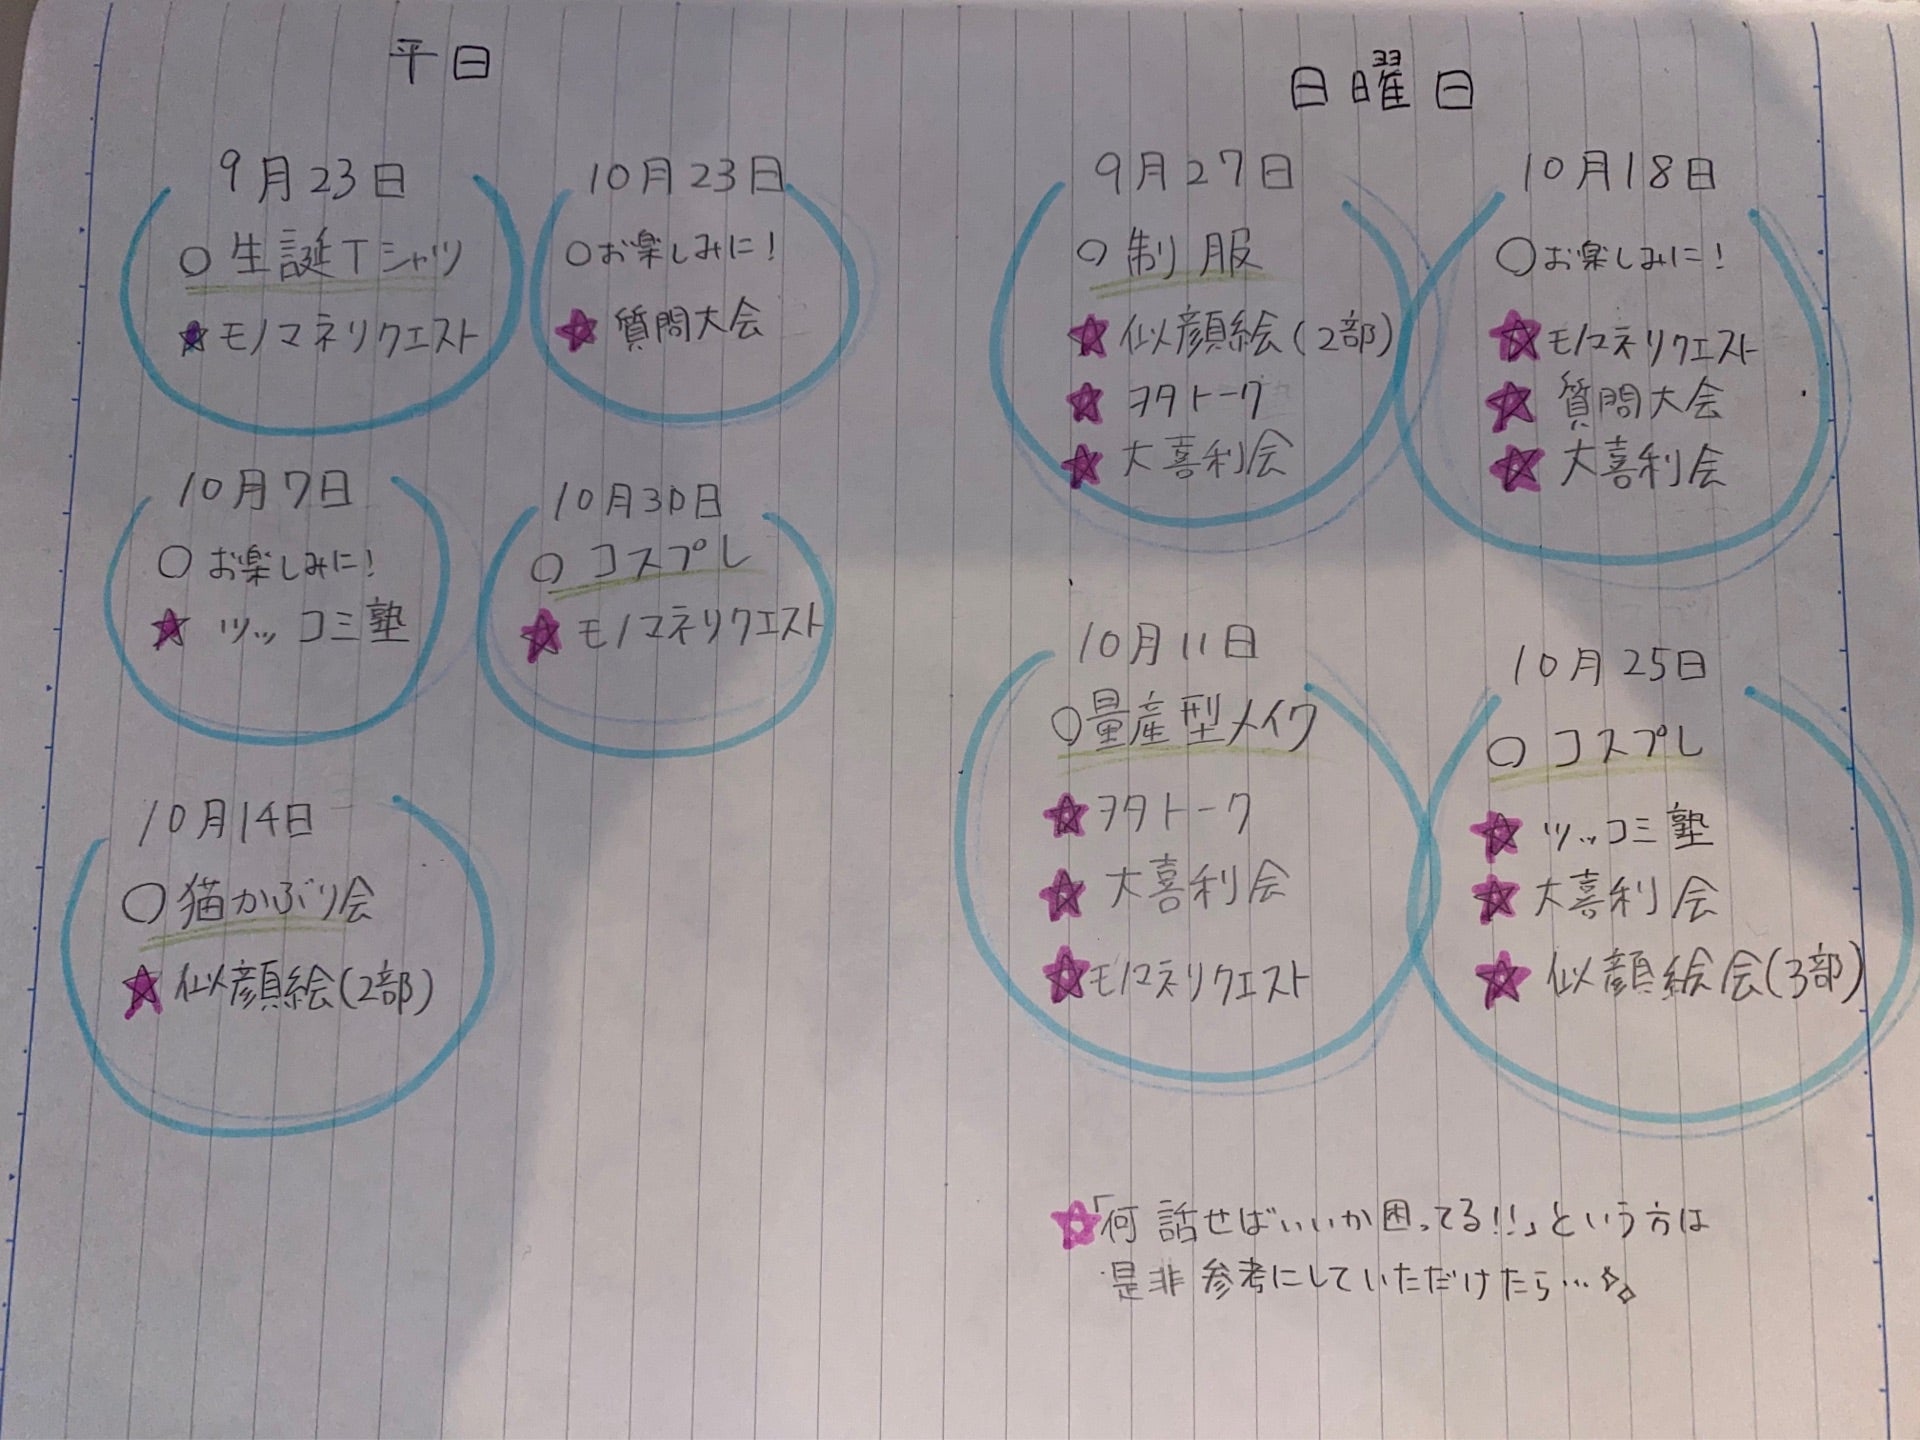 平日
9月23日
○生誕Tシャツ
★モノマネリクエスト
10月23日
○お楽しみに!
★質問大会
10月7日
○お楽しみに!
★ツッコミ塾
10月30日
○コスプレ
★モノマネリクエスト
10月14日
○猫かぶり会
★似顔絵(2部)
日曜日
9月27日
○制服
★似顔絵(2部)
★ヲタトーク
★大喜利会
10月18日
○お楽しみに!
★モノマネリクエスト
★質問大会
★大喜利会
10月11日
○量産型メイク
★ヲタトーク
★大喜利会
★モノマネリクエスト
10月25日
○コスプレ
★ツッコミ塾
★大喜利会
★似顔絵会(3部)
★「何話せばいいか困ってる!!」という方は
是非参考にしていただけたら…